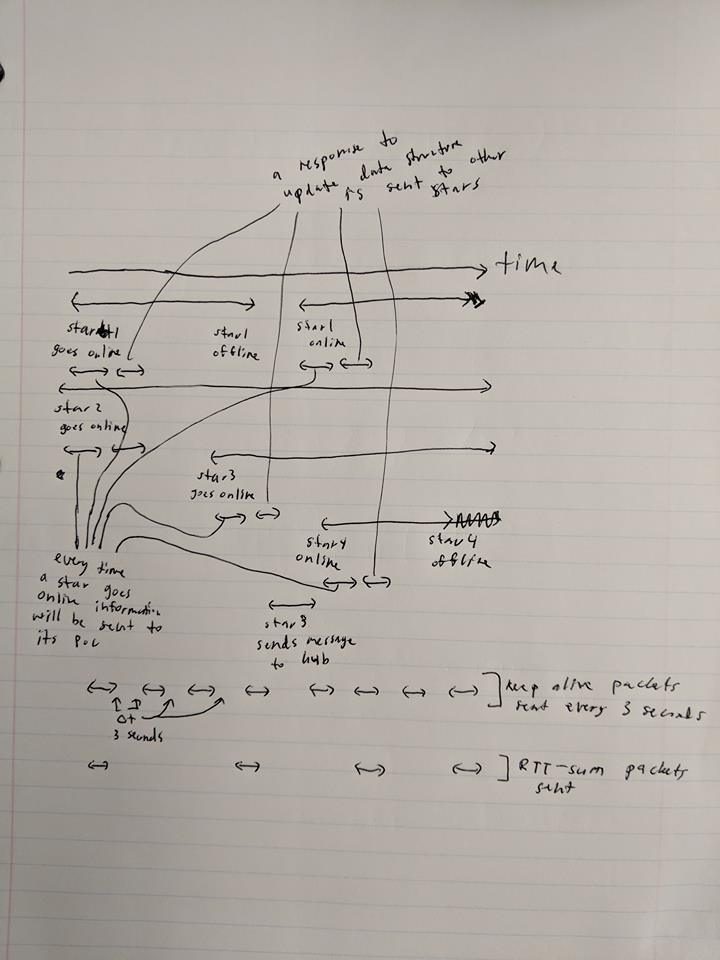 a response to
update data structure
is sent to other
stars
time
star1
goes online
star1
offline
star1
online
star2
goes online
star3
goes online
star4
online
star4
offline
every time
a star goes
online information
will be sent to
its POC
star3
sends message
to hub
keep alive packets
sent every 3 seconds
Δt
3 seconds
RTT-sum packets
sent